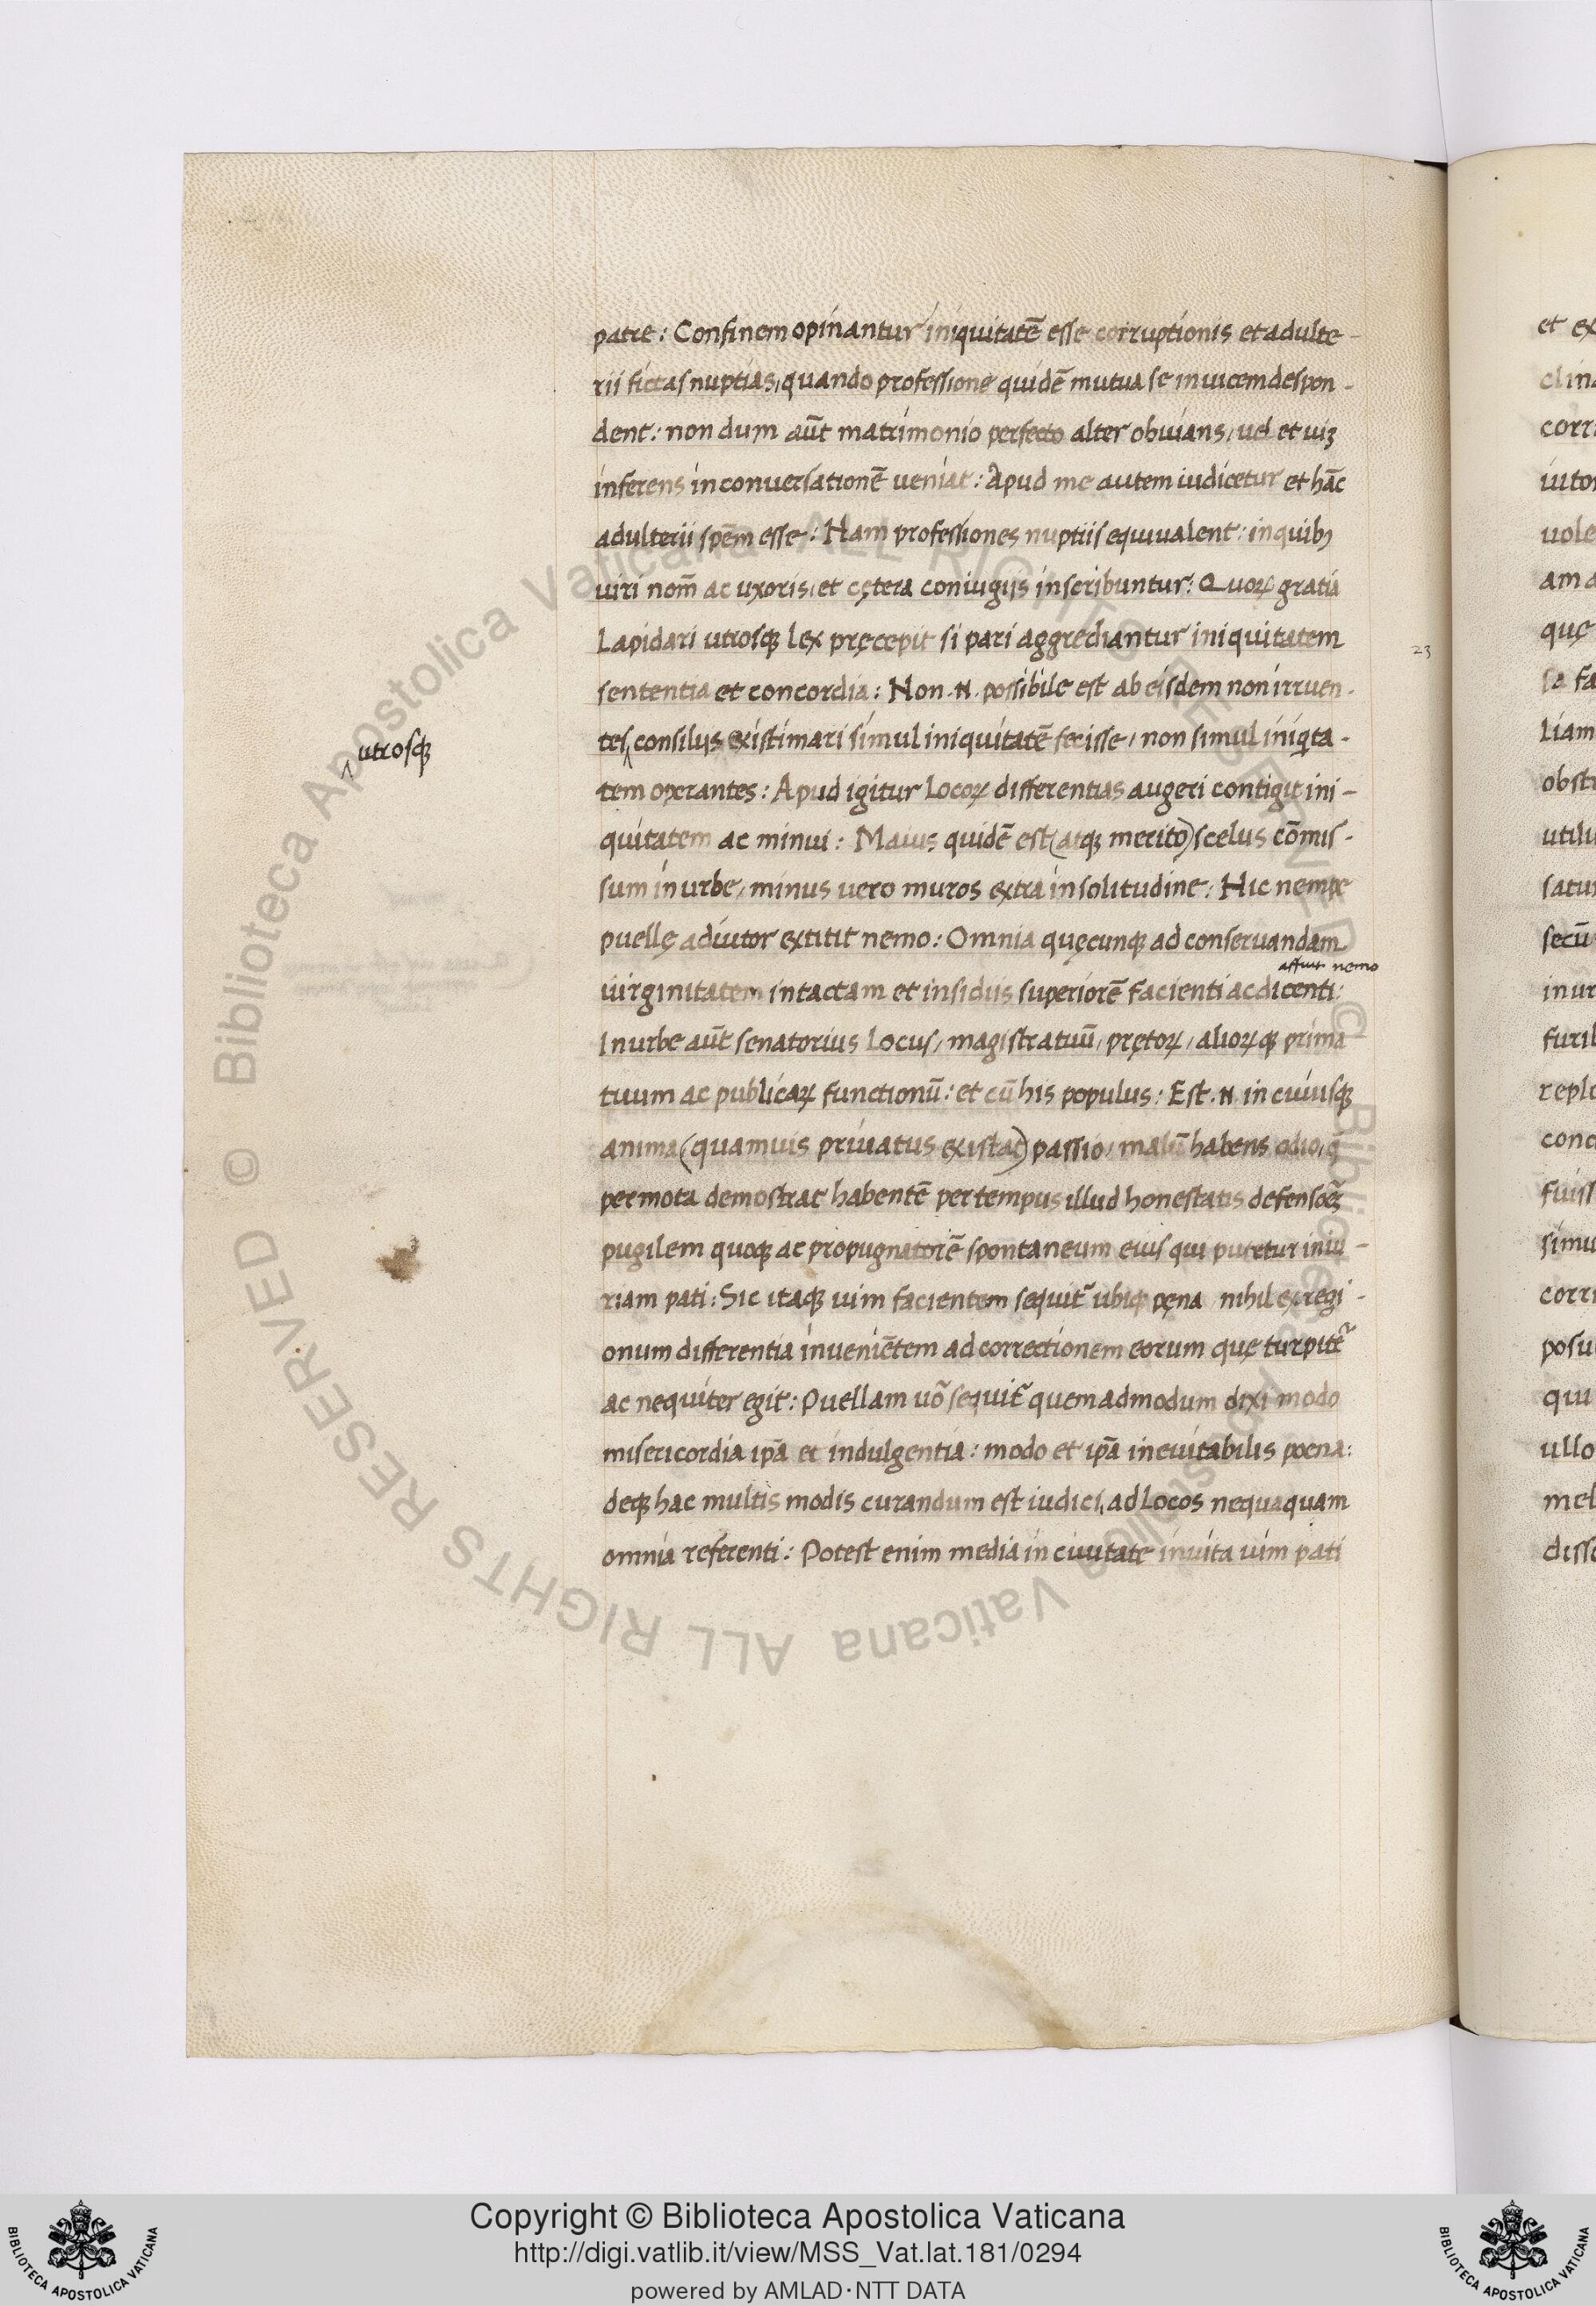 patre: Confinem opinantur iniquitatē esse corruptionis et adulte-
rii fictas nuptias, quando professione quidē mutua se invicem despon-
dent: non dum aūt matrimonio perfecto alter obvians, vel et viꝫ
inferens in conversationē veniat: Apud me autem iudicetur et hāc
adulterii spēm esse: Nam professiones nuptiis equivalent: in quibꝰ
viri nom̄ ac uxoris, et cętera coniugijs inscribuntur: Quorꝝ gratia
Lapidari utrosqꝫ lex pręcepit si pari aggrediantur iniquitatem
sententia et concordia: Non .N. possibile est ab eisdem non irruen-
tes consilijs existimari simul iniquitatē fecisse, non simul iniqta-
^utrosqꝫ
tem operantes: Apud igitur Locoꝝ differentias augeri contigit ini-
quitatem ac minui: Maius quidē est (atqꝫ merito) scelus cōmis-
sum in urbe, minus vero muros extra in solitudine: Hic nempe
puellę adiutor extitit nemo: Omnia quęcunqꝫ ad conservandam
affuit nemo
virginitatem intactam et insidiis superiorē facienti ac dicenti:
In urbe aūt senatorius Locus, magistratuū, prętoꝝ, alioꝝqꝫ prima
tuum ac publicaꝝ functionū: et cū his populus: Est .N. in cuiusqꝫ
anima (quamvis privatus existat) passio, malū habens odio, q
permota demostrat habentē per tempus illud honestatis defensoēꝫ
pugilem quoqꝫ ac propugnatorē spontaneum eius qui putetur iniu-
riam pati: Sic itaqꝫ vim facientem sequit᷑ ubiqꝫ pęna nihil ex regi-
onum differentia inveniētem ad correctionem eorum quę turpitē
ac nequiter egit: Puellam vō sequit᷑ quemadmodum dixi modo
misericordia ip̄a et indulgentia: modo et ip̄a inevitabilis poena:
deqꝫ hac multis modis curandum est iudici, ad Locos nequaquam
omnia referenti: Potest enim media in civitate invita vim pati
23
et ex
clina
corr
iuto
vole
am a
quę
sa fa
Liam
obst
utilu
satu
secū
in ur
furi
reple
conc
fuiss
simu
corr
posu
qui
ullo
mel
diss
Copyright © Biblioteca Apostolica Vaticana
http://digi.vatlib.it/view/MSS_Vat.lat.181/0294
powered by AMLAD·NTT DATA
BIBLIOTECA APOSTOLICA VATICANA
BIBLIOTECA APOSTOLICA VATICANA
© Biblioteca Apostolica Vaticana ALL RIGHTS RESERVED
© Biblioteca Apostolica Vaticana ALL RIGHTS RESERVED